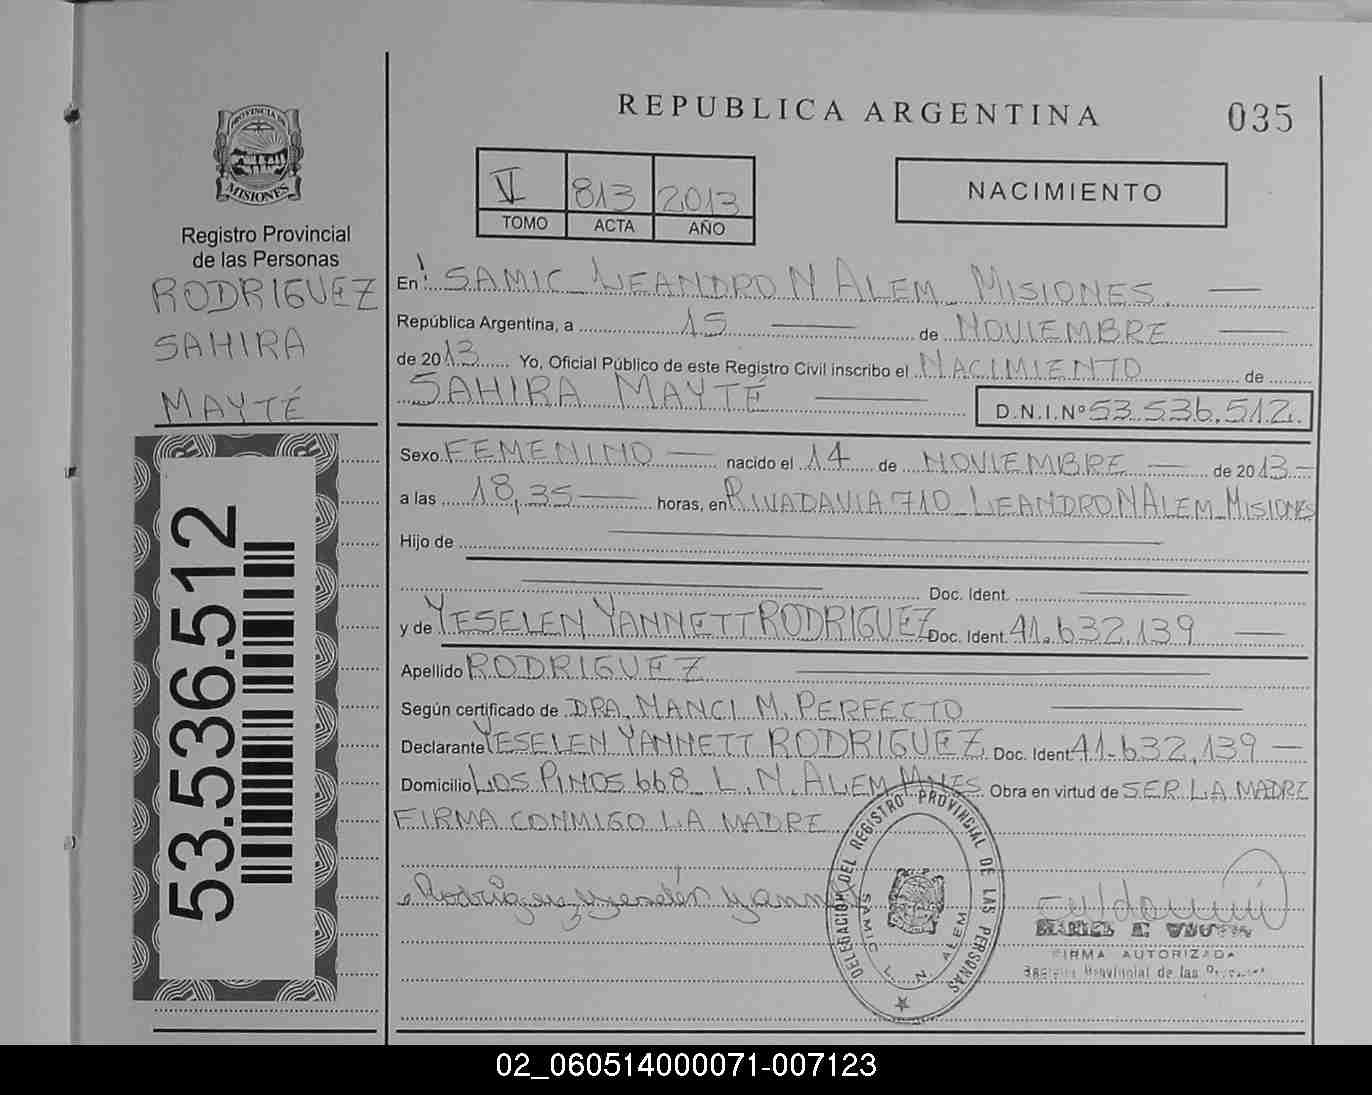 REPUBLICA ARGENTINA
035
PROVINCIA DE
MISIONES
Registro Provincial
de las Personas
RODRIGUEZ
SAHIRA
MAYTÉ
53.536.512
V 813 2013
TOMO ACTA AÑO
NACIMIENTO
En SAMIC LEANDRO N ALEM MISIONES
República Argentina, a 15 de NOVIEMBRE
de 2013 Yo, Oficial Público de este Registro Civil inscribo el NACIMIENTO de
SAHIRA MAYTÉ D.N.I.Nº 53.536.512.
Sexo FEMENINO nacido el 14 de NOVIEMBRE de 2013
a las 18,35 horas, en RIVADAVIA 710 LEANDRO N ALEM MISIONES
Hijo de
Doc. Ident.
y de YESELEN YANNETT RODRIGUEZ Doc. Ident. 41.632.139
Apellido RODRIGUEZ
Según certificado de DRA. NANCI M. PERFECTO
Declarante YESELEN YANNETT RODRIGUEZ Doc. Ident 41.632.139
Domicilio LOS PINOS 668 L.N. ALEM MNES. Obra en virtud de SER LA MADRE
FIRMA CONMIGO LA MADRE
DELEGACIÓN DEL REGISTRO PROVINCIAL DE LAS PERSONAS
SAMIC L. N. ALEM
FIRMA AUTORIZADA
Provincial de las
02_060514000071-007123